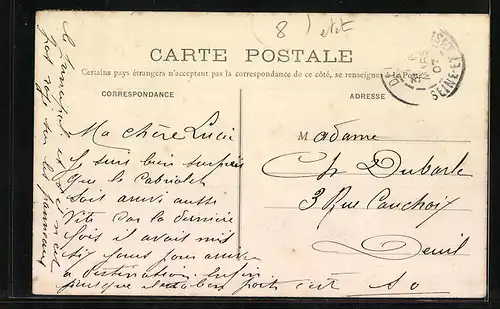 (8) etet
CARTE POSTALE
Certains pays étrangers n'acceptant pas la correspondance de ce côté, se renseigner à la Poste
CORRESPONDANCE
ADRESSE
Ma chère Lucie
Je suis bien surprise
que le cabriolet
soit arrivé aussi
vite car la dernière
fois il avait mis
dix jours pour arriver
à destination enfin
puisque est à bon port c'est
Madame
Ch Dubarle
3 Rue Cauchoix
Deuil
S O
le principal est qu'il n'est
pas les panneaux
07
SEINE-ET